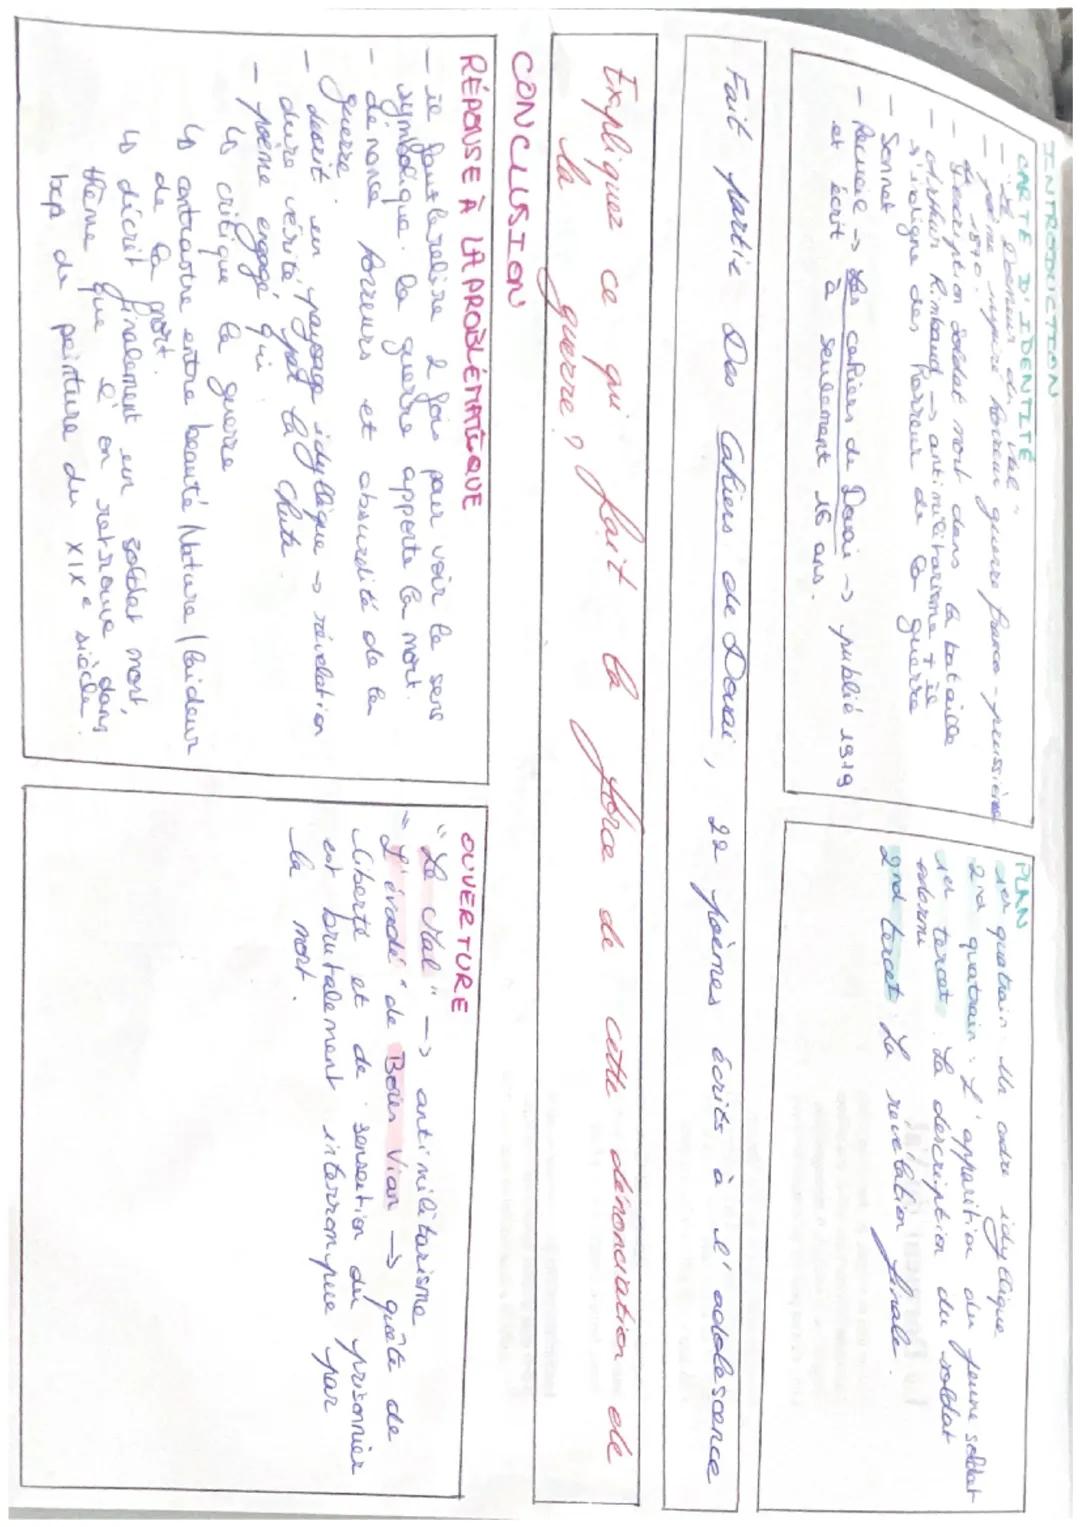 INTRODUCTION
CARTE D'IDENTITÉ
- "Le Dormeur du Val"
- poème inspiré horreur guerre franco-prussienne
de 1870.
- description soldat mort dans la bataille
- Arthur Rimbaud → antimilitarisme + il
s'indigne des horreur de la guerre
- Sonnet
- Recueil → Les cahiers de Douai → publié 1919
et écrit à seulement 16 ans.
PLAN
1er quatrain: Un cadre idyllique
2nd quatrain: L'apparition du jeune soldat
1er tercet: La description du soldat
endormi
2nd tercet: La révélation finale.
Fait partie Des Cahiers de Douai, 22 poèmes écrits à l'adolescence
Expliquez ce qui fait la force de cette dénonciation de
la guerre?
CONCLUSION
RÉPONSE À LA PROBLÉMATIQUE
- il faut le relire 2 fois pour voir le sens
symbolique. la guerre apporte la mort.
- dénonce horreurs et absurdité de la
guerre.
- décrit un paysage idyllique → révélation
dure vérité après la chute
- poème engagé qui
↳ critique la guerre
↳ contrastre entre beauté Nature / laideur
de la mort.
↳ décrit finalement un soldat mort,
thème que l'on retrouve dans
bcp de peinture du XIXe siècle.
OUVERTURE
"Le Mal" → antimilitarisme
"L'évadé" de Boris Vian → quête de
liberté et de sensation du prisonnier
est brutalement interrompue par
la mort.